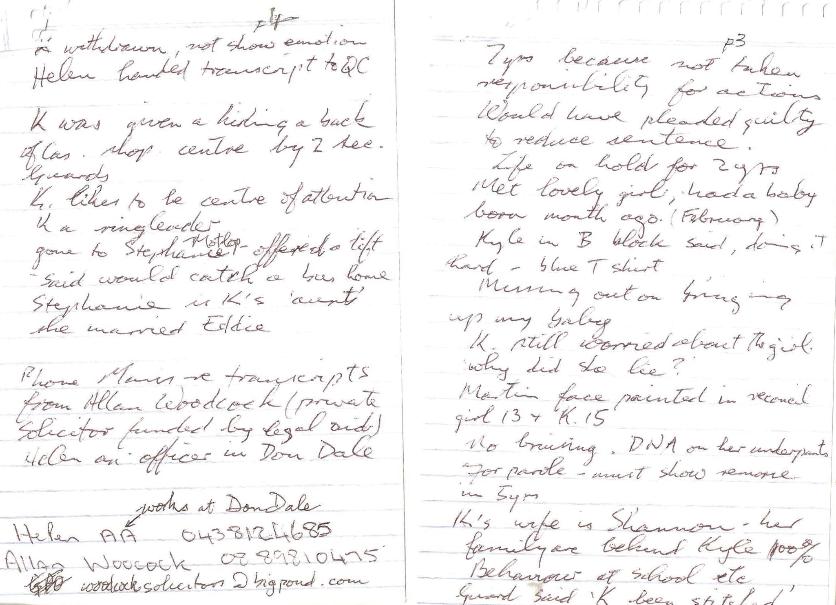 p4
is withdrawn, not show emotion
Helen handed transcript to QC
K was given a hiding a back
of Cas. shop centre by 2 sec.
guards
K. likes to be centre of attention
K a ringleader
gone to Stephanie - offered a lift
- said would catch a bus home
Stephanie is K's 'aunt'
she married Eddie
Phone re transcripts
from Allan Woodcock (private
solicitor funded by legal aid)
Helen an officer in Don Dale
works at Don Dale
Helen AA 0438124685
Allan Woodcock 08 89810475
woodcocksolicitors@bigpond.com
p3
7yrs because not taken
responsibility for actions
Would have pleaded guilty
to reduce sentence.
Life on hold for 2 yrs
Met lovely girl, had a baby
born month ago. (February)
Kyle in B block said, doing it
hard - blue T shirt
Missing out on bringing
up my baby
K. still worried about the girl.
why did she lie?
Martin face painted in
girl 13 + K. 15
No bruising. DNA on her underpants
For parole - must show remorse
in 5yrs
K's wife is Shannon - her
family are behind Kyle 100%
Behaviour at school etc
Guard said 'K been